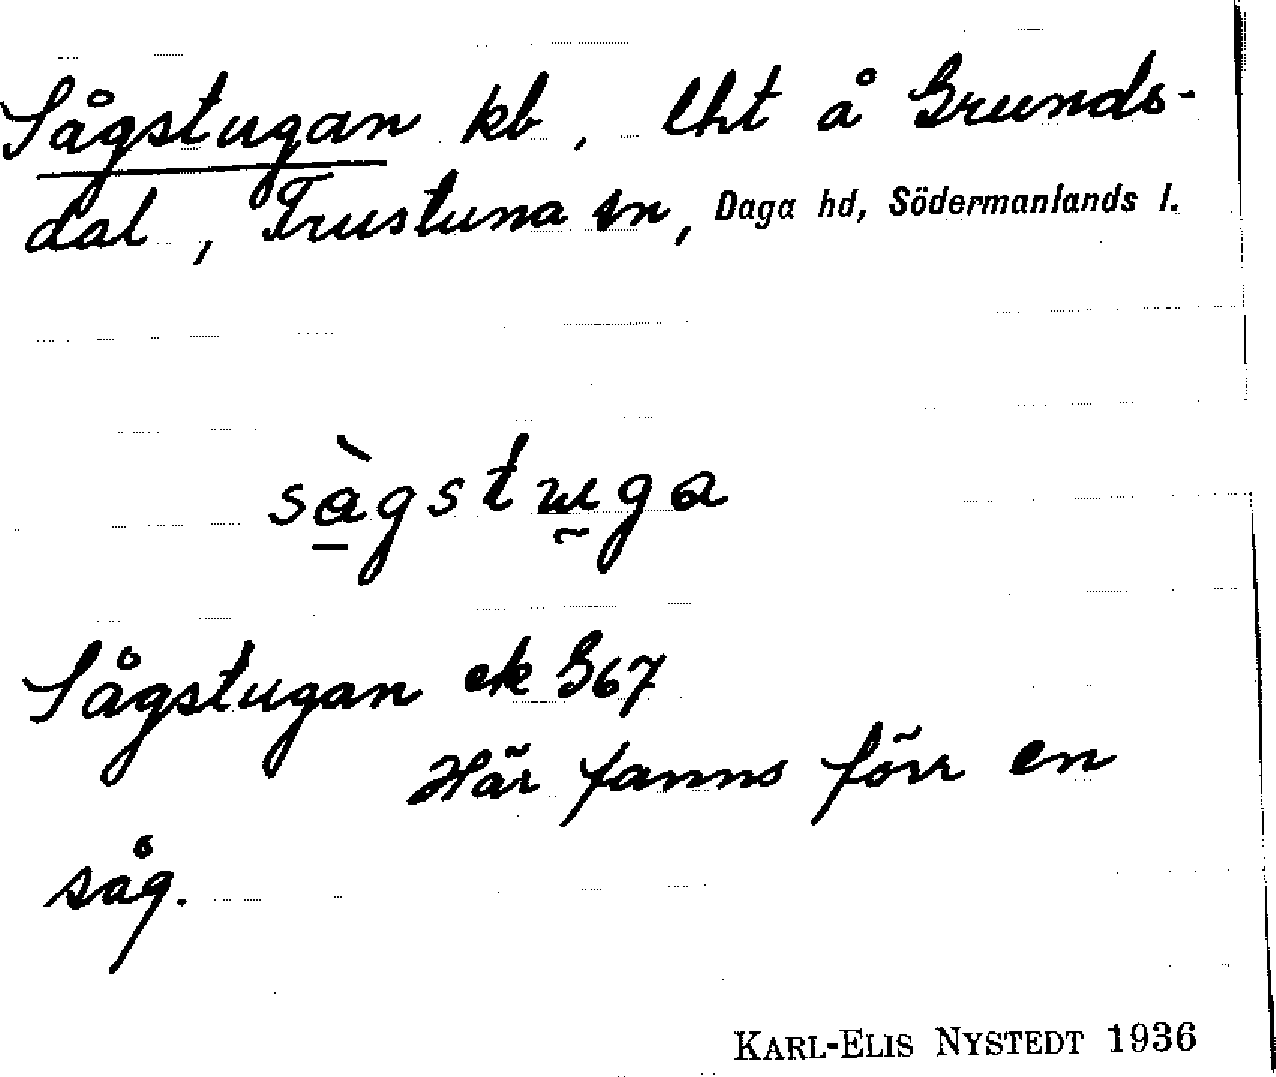 Sågstugan kb, lht å Grunds-
dal, Frustuna sn, Daga hd, Södermanlands l.
sàgstuga
Sågstugan ek 367
Här fanns förr en
såg.
KARL-ELIS NYSTEDT 1936